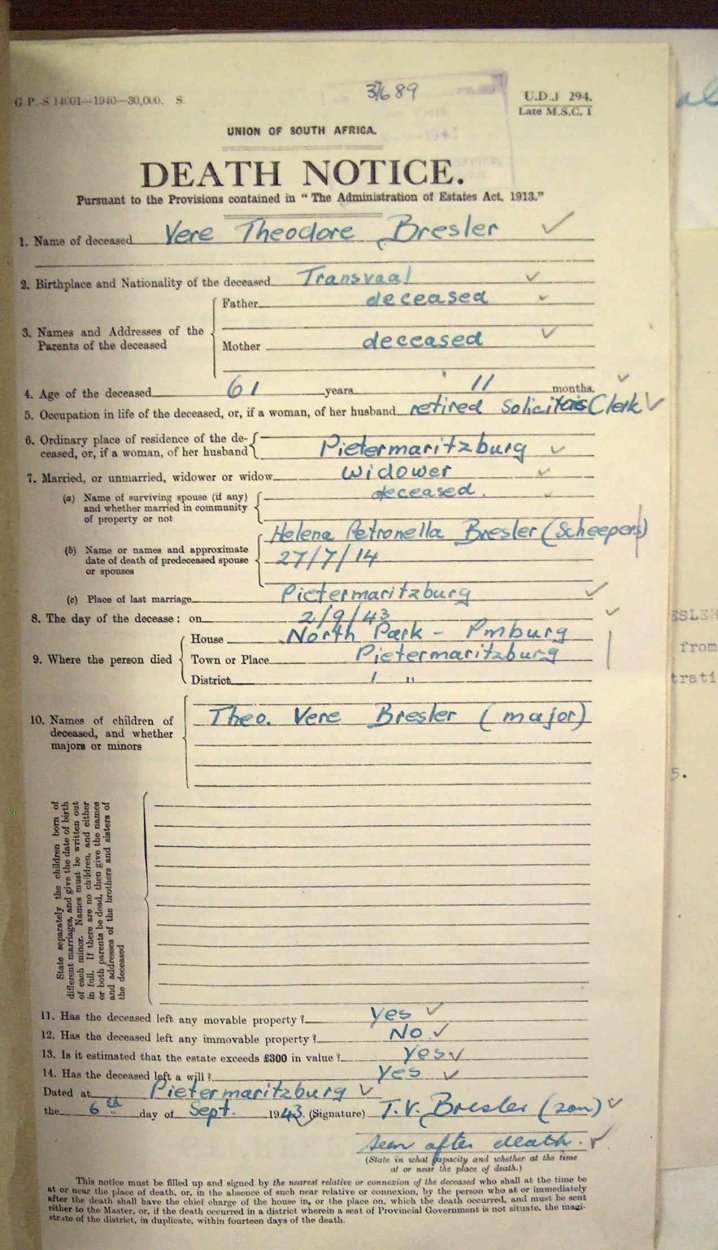 G.P.-S 14001—1940—30,000. S.
37689
U.D.J 294.
Late M.S.C. 1
UNION OF SOUTH AFRICA.
DEATH NOTICE.
Pursuant to the Provisions contained in "The Administration of Estates Act, 1913."
1. Name of deceased Vere Theodore Bresler
2. Birthplace and Nationality of the deceased Transvaal
3. Names and Addresses of the Parents of the deceased
Father deceased
Mother deceased
4. Age of the deceased 61 years 11 months.
5. Occupation in life of the deceased, or, if a woman, of her husband retired Solicitors Clerk
6. Ordinary place of residence of the de-
ceased, or, if a woman, of her husband
Pietermaritzburg
7. Married, or unmarried, widower or widow Widower
(a) Name of surviving spouse (if any)
and whether married in community
of property or not
deceased.
(b) Name or names and approximate
date of death of predeceased spouse
or spouses
Helena Petronella Bresler (Scheepers)
27/7/14
(c) Place of last marriage Pietermaritzburg
8. The day of the decease: on 2/9/43
9. Where the person died
House North Park - Pmburg
Town or Place Pietermaritzburg
District " "
10. Names of children of
deceased, and whether
majors or minors
Theo. Vere Bresler (major)
State separately the children born of
different marriages, and give the date of birth
of each minor. Names must be written out
in full. If there are no children, and either
or both parents be dead, then give the names
and addresses of the brothers and sisters of
the deceased
11. Has the deceased left any movable property? Yes
12. Has the deceased left any immovable property? No
13. Is it estimated that the estate exceeds £300 in value? Yes
14. Has the deceased left a will? Yes
Dated at Pietermaritzburg
the 6th day of Sept. 1943 (Signature) T.V. Bresler (son)
seen after death.
(State in what capacity and whether at the time
at or near the place of death.)
This notice must be filled up and signed by the nearest relative or connexion of the deceased who shall at the time be
at or near the place of death, or, in the absence of such near relative or connexion, by the person who at or immediately
after the death shall have the chief charge of the house in, or the place on, which the death occurred, and must be sent
either to the Master, or, if the death occurred in a district wherein a seat of Provincial Government is not situate, the magi-
strate of the district, in duplicate, within fourteen days of the death.
from
5.